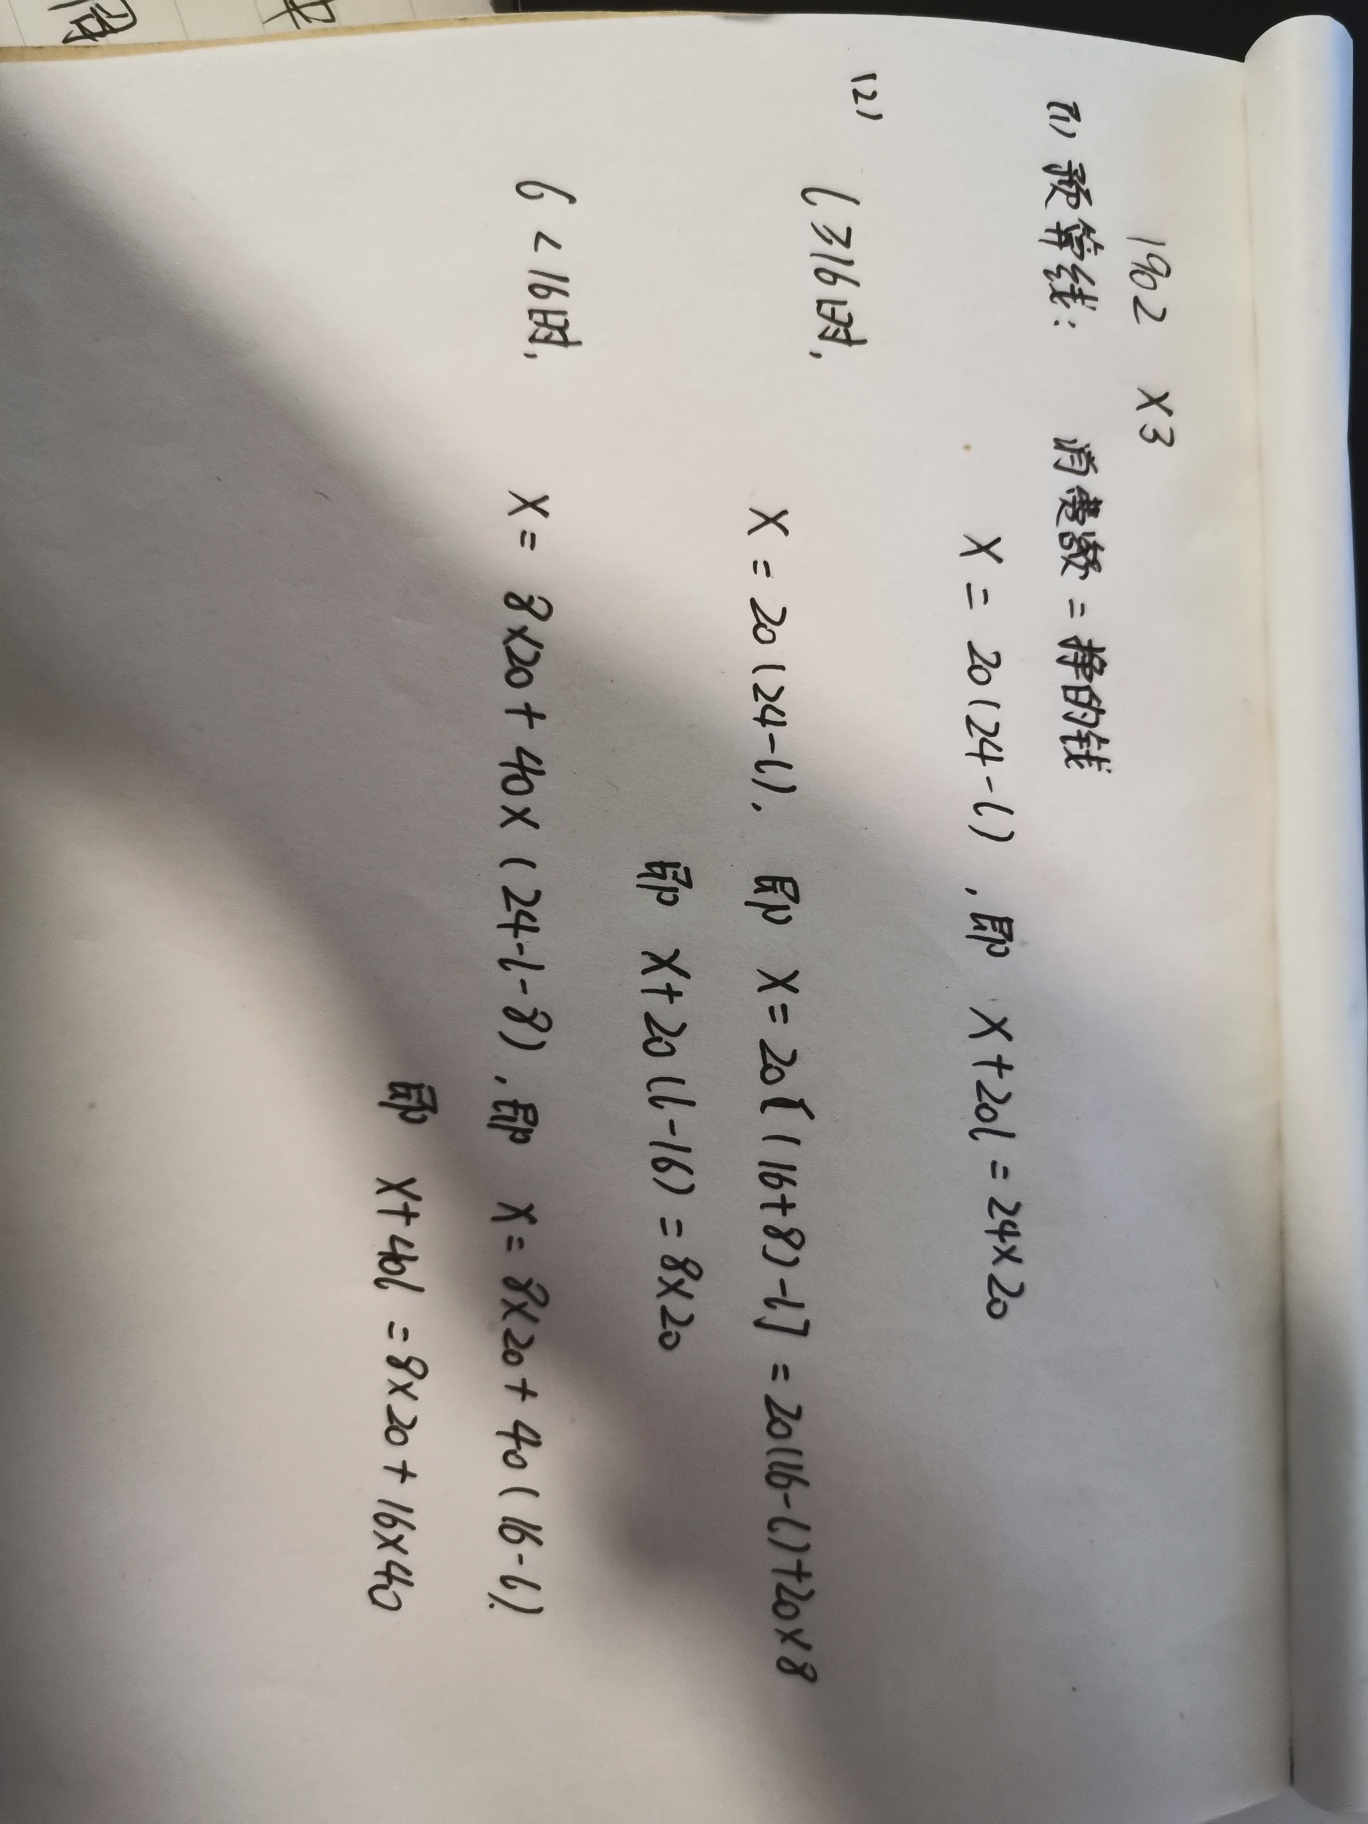 1902 X3
(1) 预算线: 消费数 = 挣的钱
X = 20(24-l), 即 X+20l = 24×20
(2)
l≥16时,
X = 20(24-l), 即 X = 20[(16+8)-l] = 20(16-l)+20×8
即 X+20(l-16) = 8×20
l<16时,
X = 8×20+40×(24-l-8), 即 X = 8×20+40(16-l).
即 X+40l = 8×20+16×40